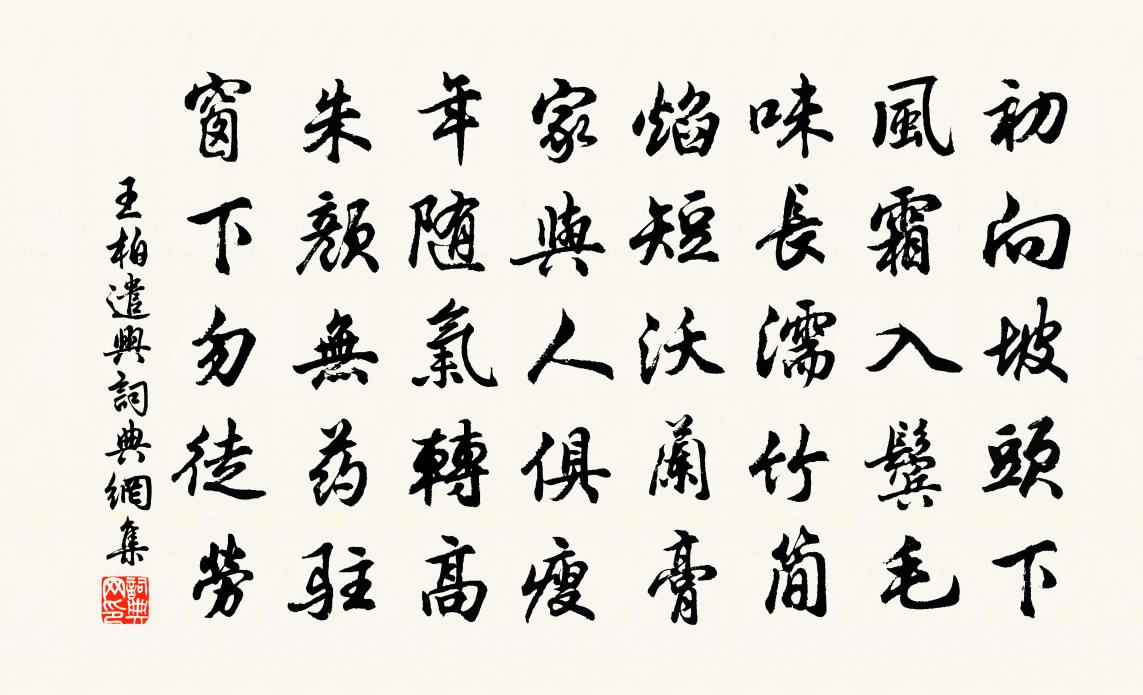 初向坡頭下
風霜入鬢毛
味長濡竹簡
焰短沃蘭膏
家與人俱瘦
年随氣轉高
朱顔無药駐
窗下勿徒勞
王柏遣興詞典網集
詞典网印